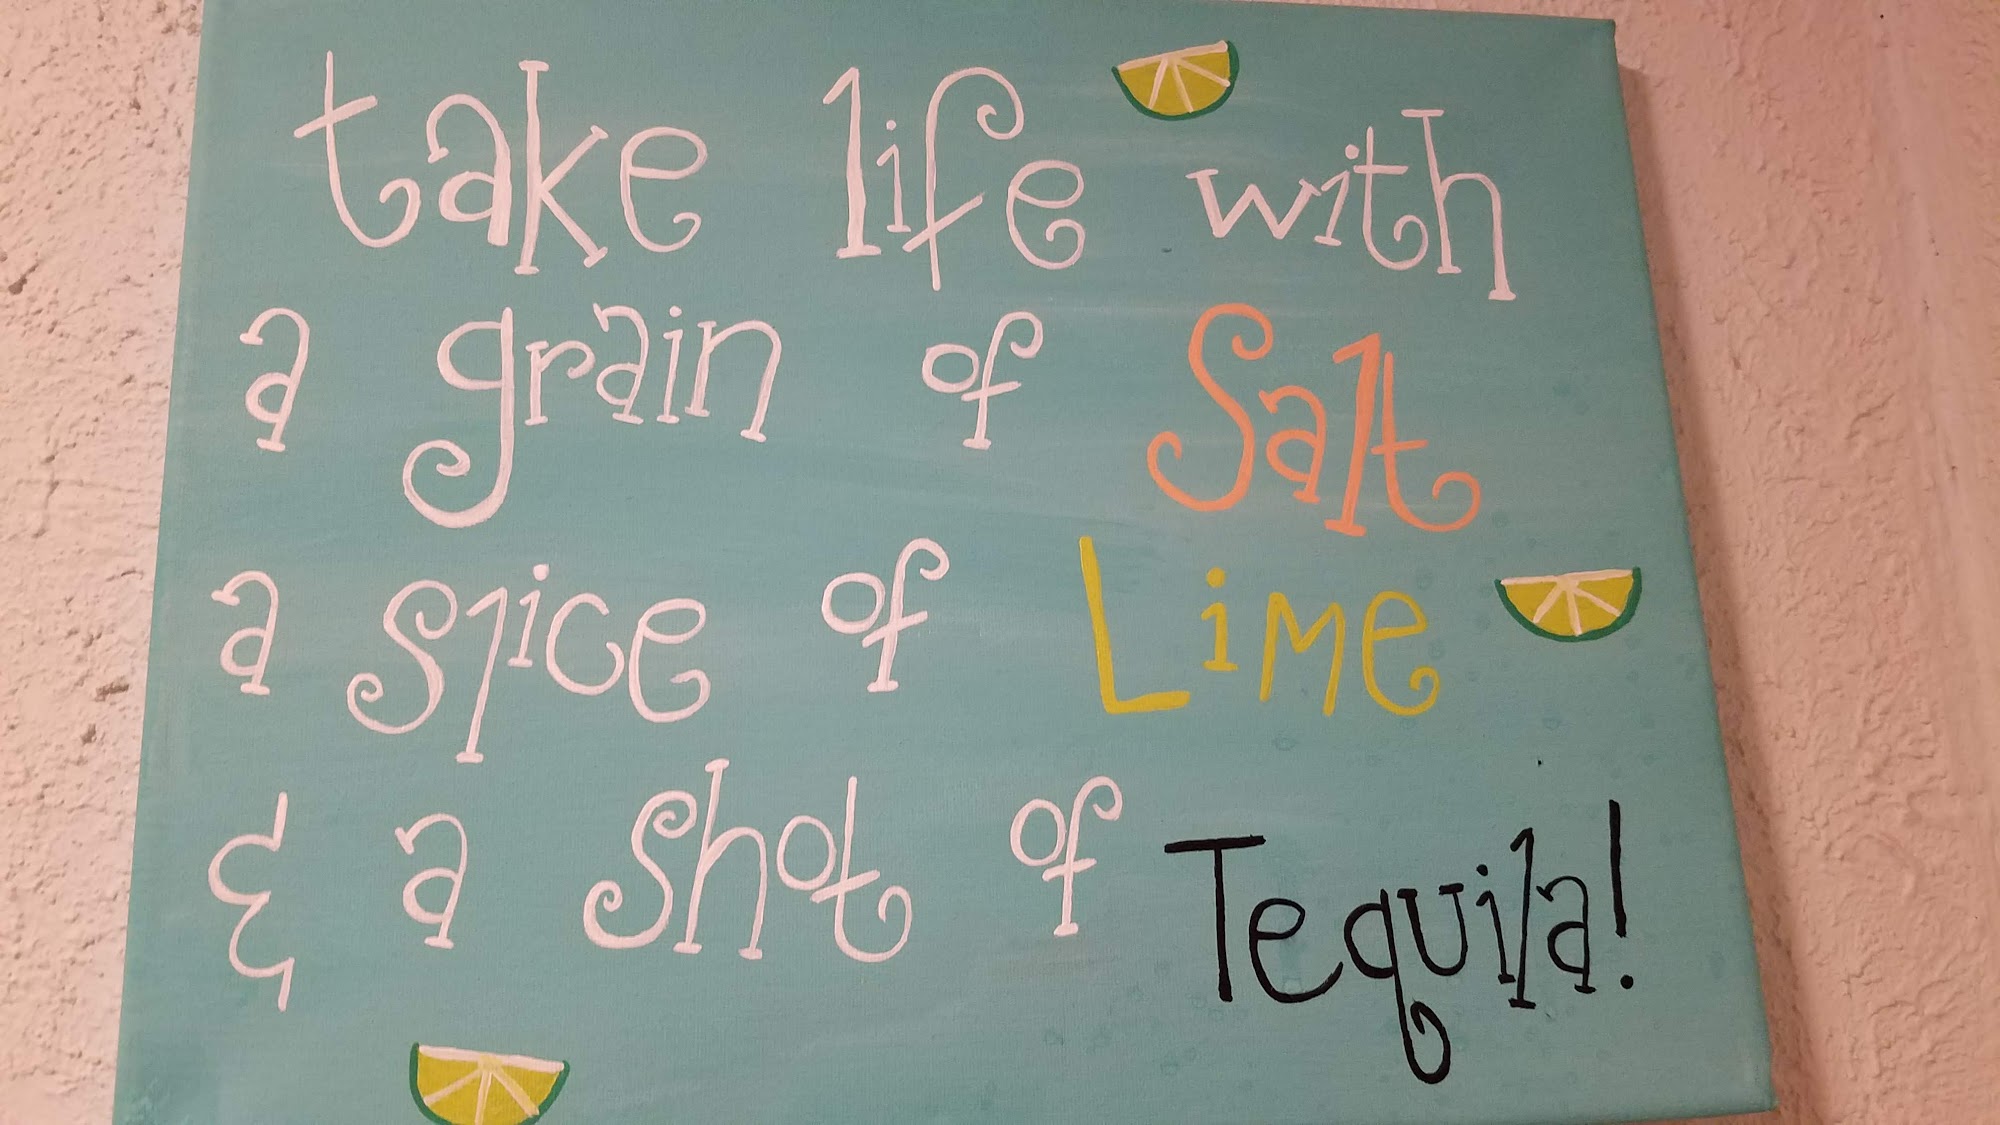 take life with
a grain of Salt
a slice of Lime
& a shot of Tequila!